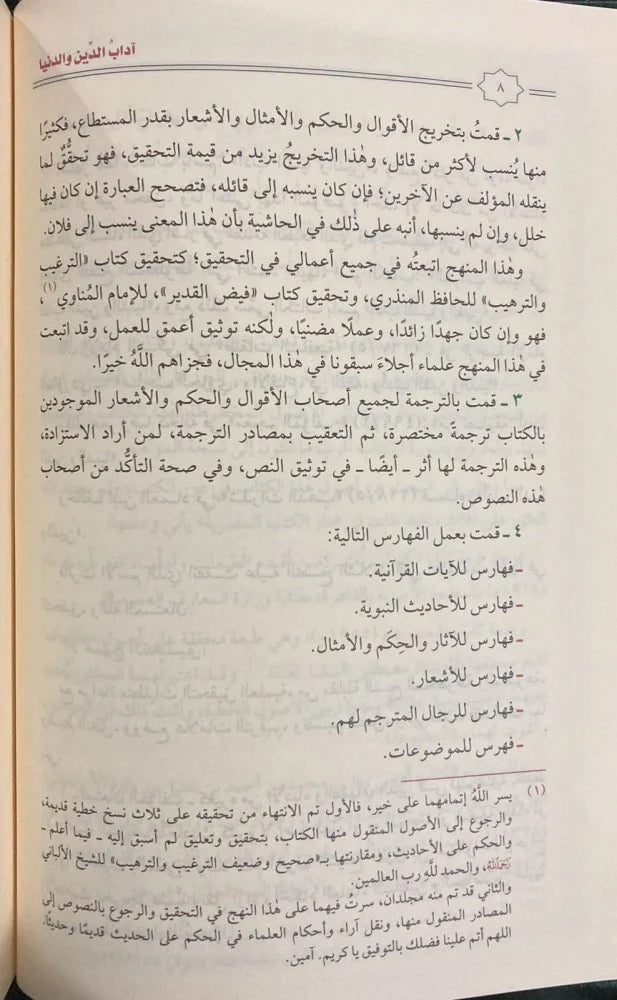 آدابُ الدِّين والدنيا
٨
٢ ـ قمتُ بتخريج الأقوال والحكم والأمثال والأشعار بقدر المستطاع، فكثيرًا
منها يُنسب لأكثر من قائل، وهٰذا التخريجُ يزيد من قيمة التحقيق، فهو تحقُّقٌ لما
ينقله المؤلف عن الآخرين؛ فإن كان ينسبه إلى قائله، فتصحح العبارة إن كان فيها
خلل، وإن لم ينسبها، أنبه على ذٰلك في الحاشية بأن هٰذا المعنى ينسب إلى فلان.
وهٰذا المنهج اتبعتُه في جميع أعمالي في التحقيق؛ كتحقيق كتاب «الترغيب
والترهيب» للحافظ المنذري، وتحقيق كتاب «فيض القدير»، للإمام المُناوي(١)،
فهو وإن كان جهدًا زائدًا، وعملًا مضنيًا، ولٰكنه توثيق أعمق للعمل، وقد اتبعت
في هٰذا المنهج علماء أجلاءَ سبقونا في هٰذا المجال، فجزاهم اللَّهُ خيرًا.
٣ ـ قمت بالترجمة لجميع أصحاب الأقوال والحكم والأشعار الموجودين
بالكتاب ترجمةً مختصرة، ثم التعقيب بمصادر الترجمة، لمن أراد الاستزادة،
وهٰذه الترجمة لها أثر ـ أيضًا ـ في توثيق النص، وفي صحة التأكُّد من أصحاب
هٰذه النصوص.
٤ ـ قمت بعمل الفهارس التالية:
ـ فهارس للآيات القرآنية.
ـ فهارس للأحاديث النبوية.
ـ فهارس للآثار والحِكَم والأمثال.
ـ فهارس للأشعار.
ـ فهارس للرجال المترجم لهم.
ـ فهرس للموضوعات.
(١) يسر اللَّهُ إتمامهما على خير، فالأول تم الانتهاء من تحقيقه على ثلاث نسخ خطية قديمة،
والرجوع إلى الأصول المنقول منها الكتاب، بتحقيق وتعليق لم أسبق إليه ـ فيما أعلم ـ
والحكم على الأحاديث، ومقارنتها بـ«صحيح وضعيف الترغيب والترهيب» للشيخ الألباني
رَحِمَهُ اللَّهُ، والحمد للَّهِ رب العالمين.
والثاني قد تم منه مجلدان، سرتُ فيهما على هٰذا النهج في التحقيق والرجوع بالنصوص إلى
المصادر المنقول منها، ونقل آراء وأحكام العلماء في الحكم على الحديث قديمًا وحديثًا.
اللهم أتم علينا فضلك بالتوفيق يا كريم. آمين.